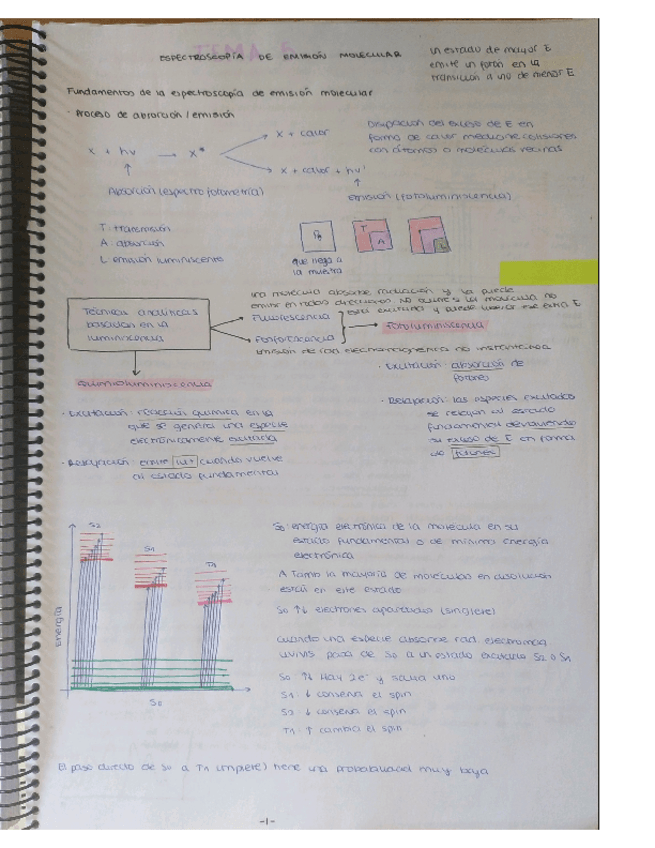 ESPECTROSCOPÍA DE EMISIÓN MOLECULAR
un estado de mayor E
emite un fotón en la
transición a uno de menor E
Fundamentos de la espectroscopía de emisión molecular
- Proceso de absorción/emisión
Disipación del exceso de E en
forma de calor mediante colisiones
con átomos o moléculas vecinas
x + calor
x + hν → x*
x + calor + hν'
Absorción (espectrofotometría)
emisión (fotoluminiscencia)
T: transmisión
A: absorción
L emisión luminiscente
P₀
T
A
L
que llega a
la muestra
una molécula absorbe radiación y la puede
emitir en todas direcciones
Técnicas analíticas
basadas en la
luminiscencia
Fluorescencia
Fotoluminiscencia
Fosforescencia
emisión de rad electromagnética no instantánea
Quimioluminiscencia
· Excitación: absorción de
fotones
· Excitación: reacción química en la
que se genera una especie
electrónicamente excitada
· Relajación: las especies excitadas
se relajan al estado
fundamental devolviendo
su exceso de E en forma
de fotones
· Relajación: emite luz cuando vuelve
al estado fundamental
S2
S1
T1
Energía
S0
S0: energía electrónica de la molécula en su
estado fundamental o de mínimo energía
electrónica
A Tamb la mayoría de moléculas en disolución
están en este estado
S0 ↑↓ electrones apareados (singlete)
Cuando una especie absorbe rad. electromag
uv/vis pasa de S0 a un estado excitado S2 o S1
S0 ↑↓ Hay 2e⁻ y salta uno
S1 ↓ conserva el spin
S2 ↓ conserva el spin
T1 ↑ cambia el spin
El paso directo de S0 a T1 (triplete) tiene una probabilidad muy baja
-1-